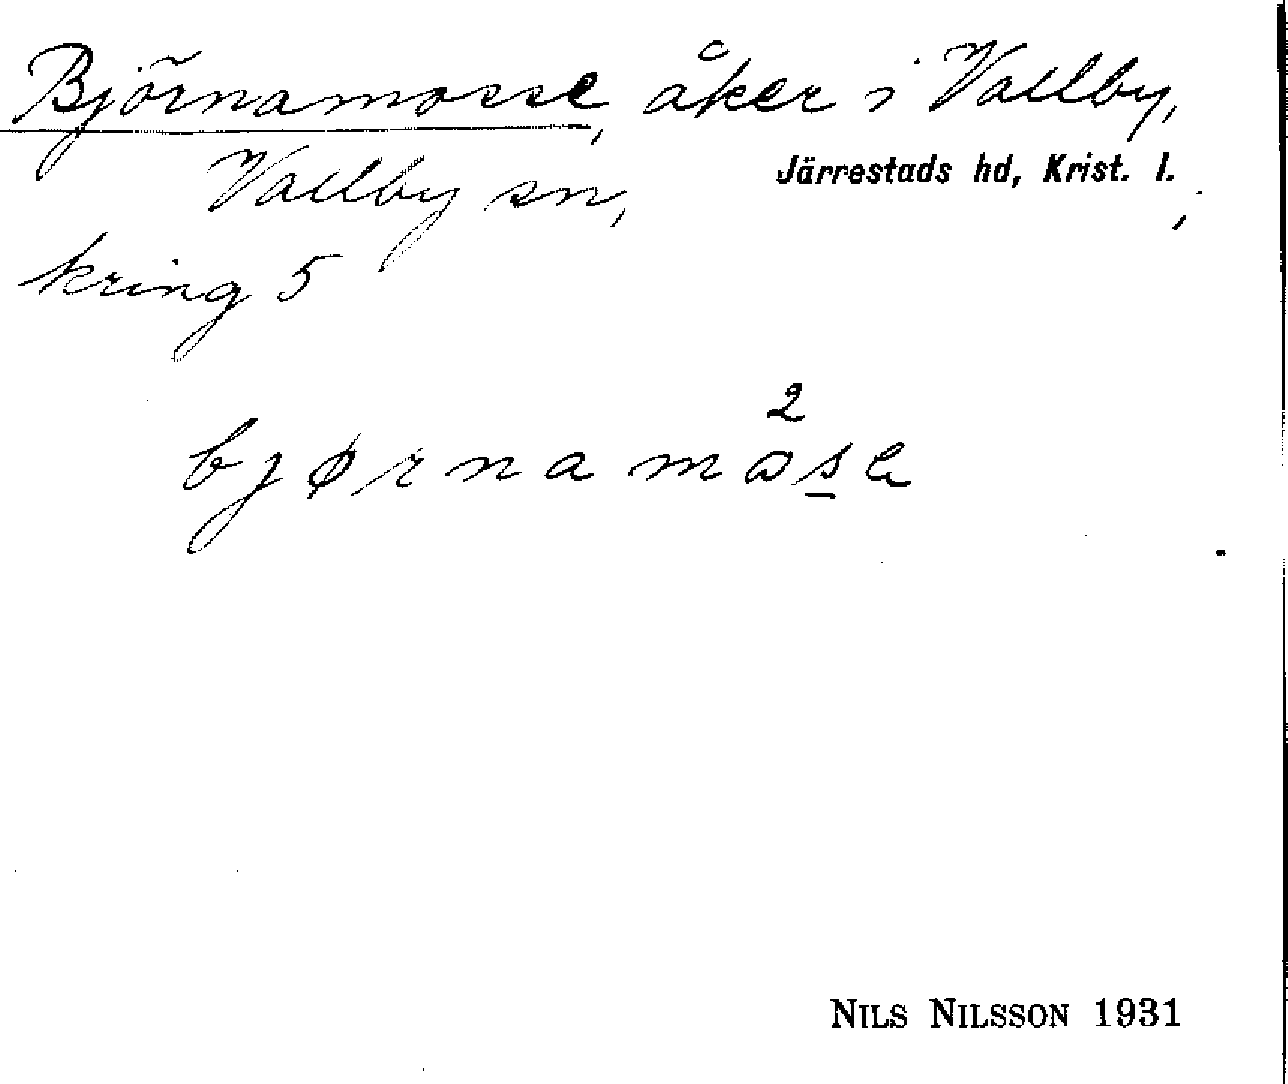 Björnamosse, åker i Vallby,
Vallby sn, Järrestads hd, Krist. l.;
kring 5
2
bjørnamosa
NILS NILSSON 1931